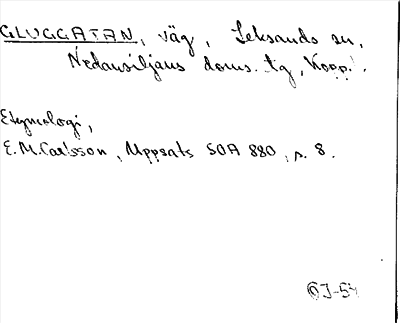 GLUGGATAN, väg, Leksands sn,
Nedansiljans doms. tg, Kopp.
Etymologi,
E.M.Carlsson, Uppsats SOA 880, s. 8.